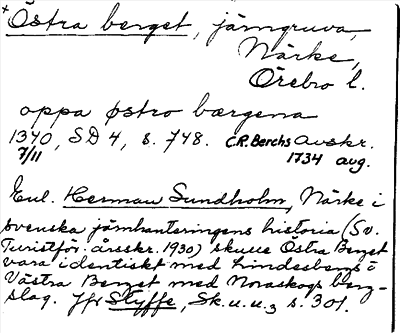 + Östra berget, järngruva,
Närke,
Örebro l.
oppa østro bærgena
1340, SD 4, s. 748. C.R. Berchs avskr.
7/11 1734 avg.
Enl. Herman Sundholm, Närke i
svenska järnhanteringens historia (Sv.
Turistför. årsskr. 1930) skulle Östra Berget
vara identiskt med Lindesbergs o
Västra Berget med Noraskogs berg-
slag. Jfr Styffe, Sk. u. u.3 s. 301.